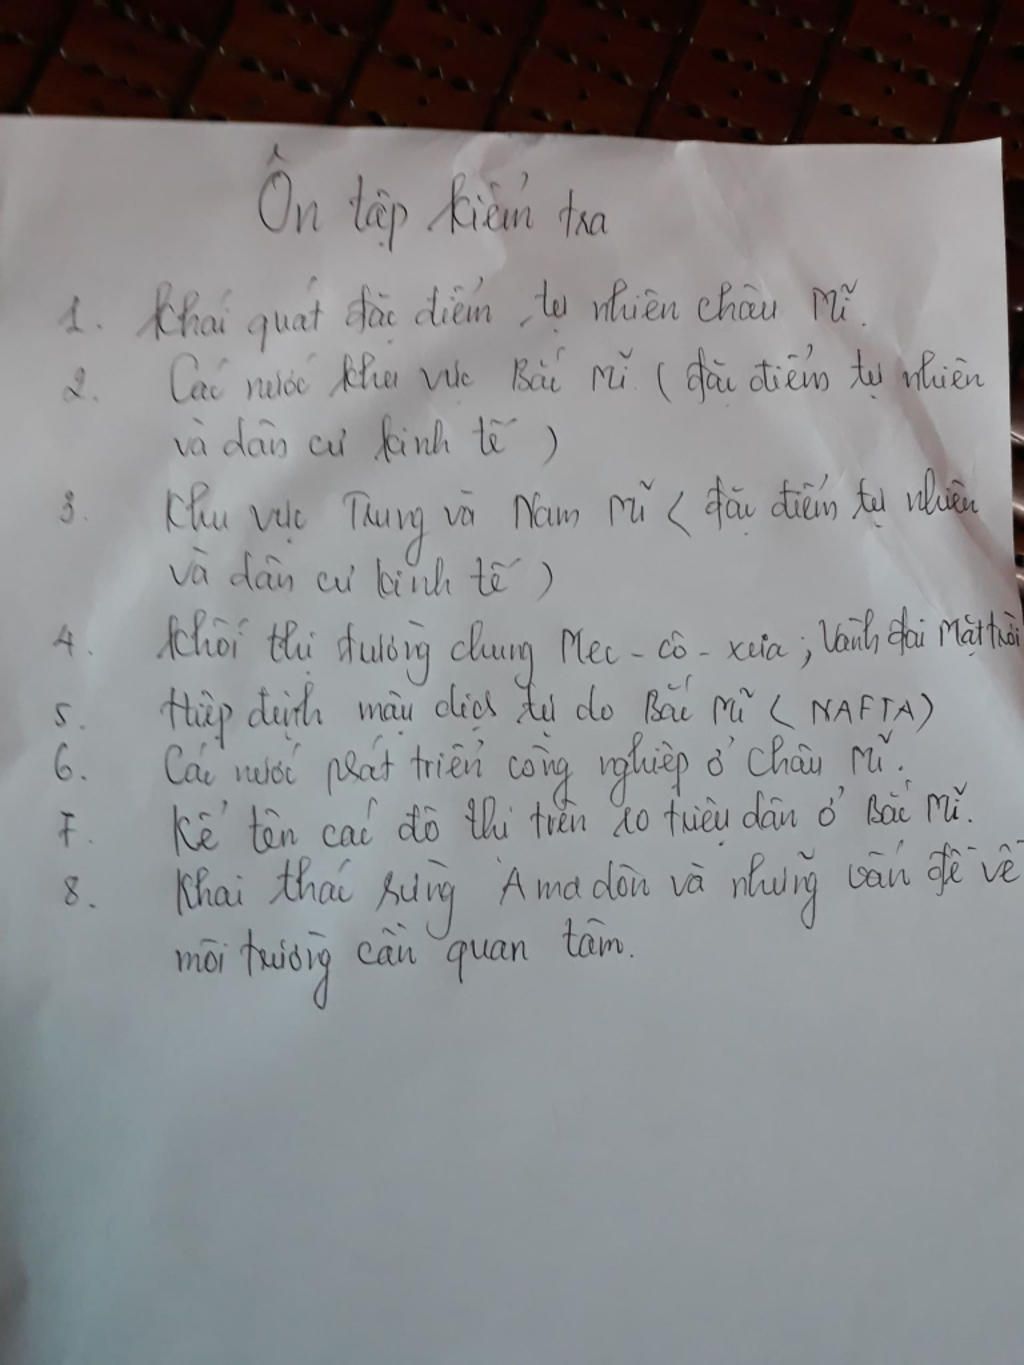 Ôn tập kiểm tra
1. Khái quát đặc điểm tự nhiên châu Mĩ.
2. Các nước khu vực Bắc Mĩ (đặc điểm tự nhiên
và dân cư kinh tế)
3. Khu vực Trung và Nam Mĩ (đặc điểm tự nhiên
và dân cư kinh tế)
4. Khối thị trường chung Mec-cô-xua; Vành đai Mặt trời
5. Hiệp định mậu dịch tự do Bắc Mĩ (NAFTA)
6. Các nước phát triển công nghiệp ở Châu Mĩ.
7. Kể tên các đô thị trên 10 triệu dân ở Bắc Mĩ.
8. Khai thác rừng Amadôn và những vấn đề về
môi trường cần quan tâm.